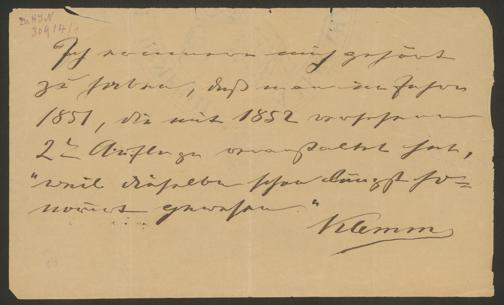 Zu H.I.N.
309/4/1
Ich erinnere mich gehört
zu haben, daß man im Jahre
1851, die mit 1852 versehene
2te Auflage veranstaltet hat,
"weil dieselbe schon längst
gewesen."
Klemm